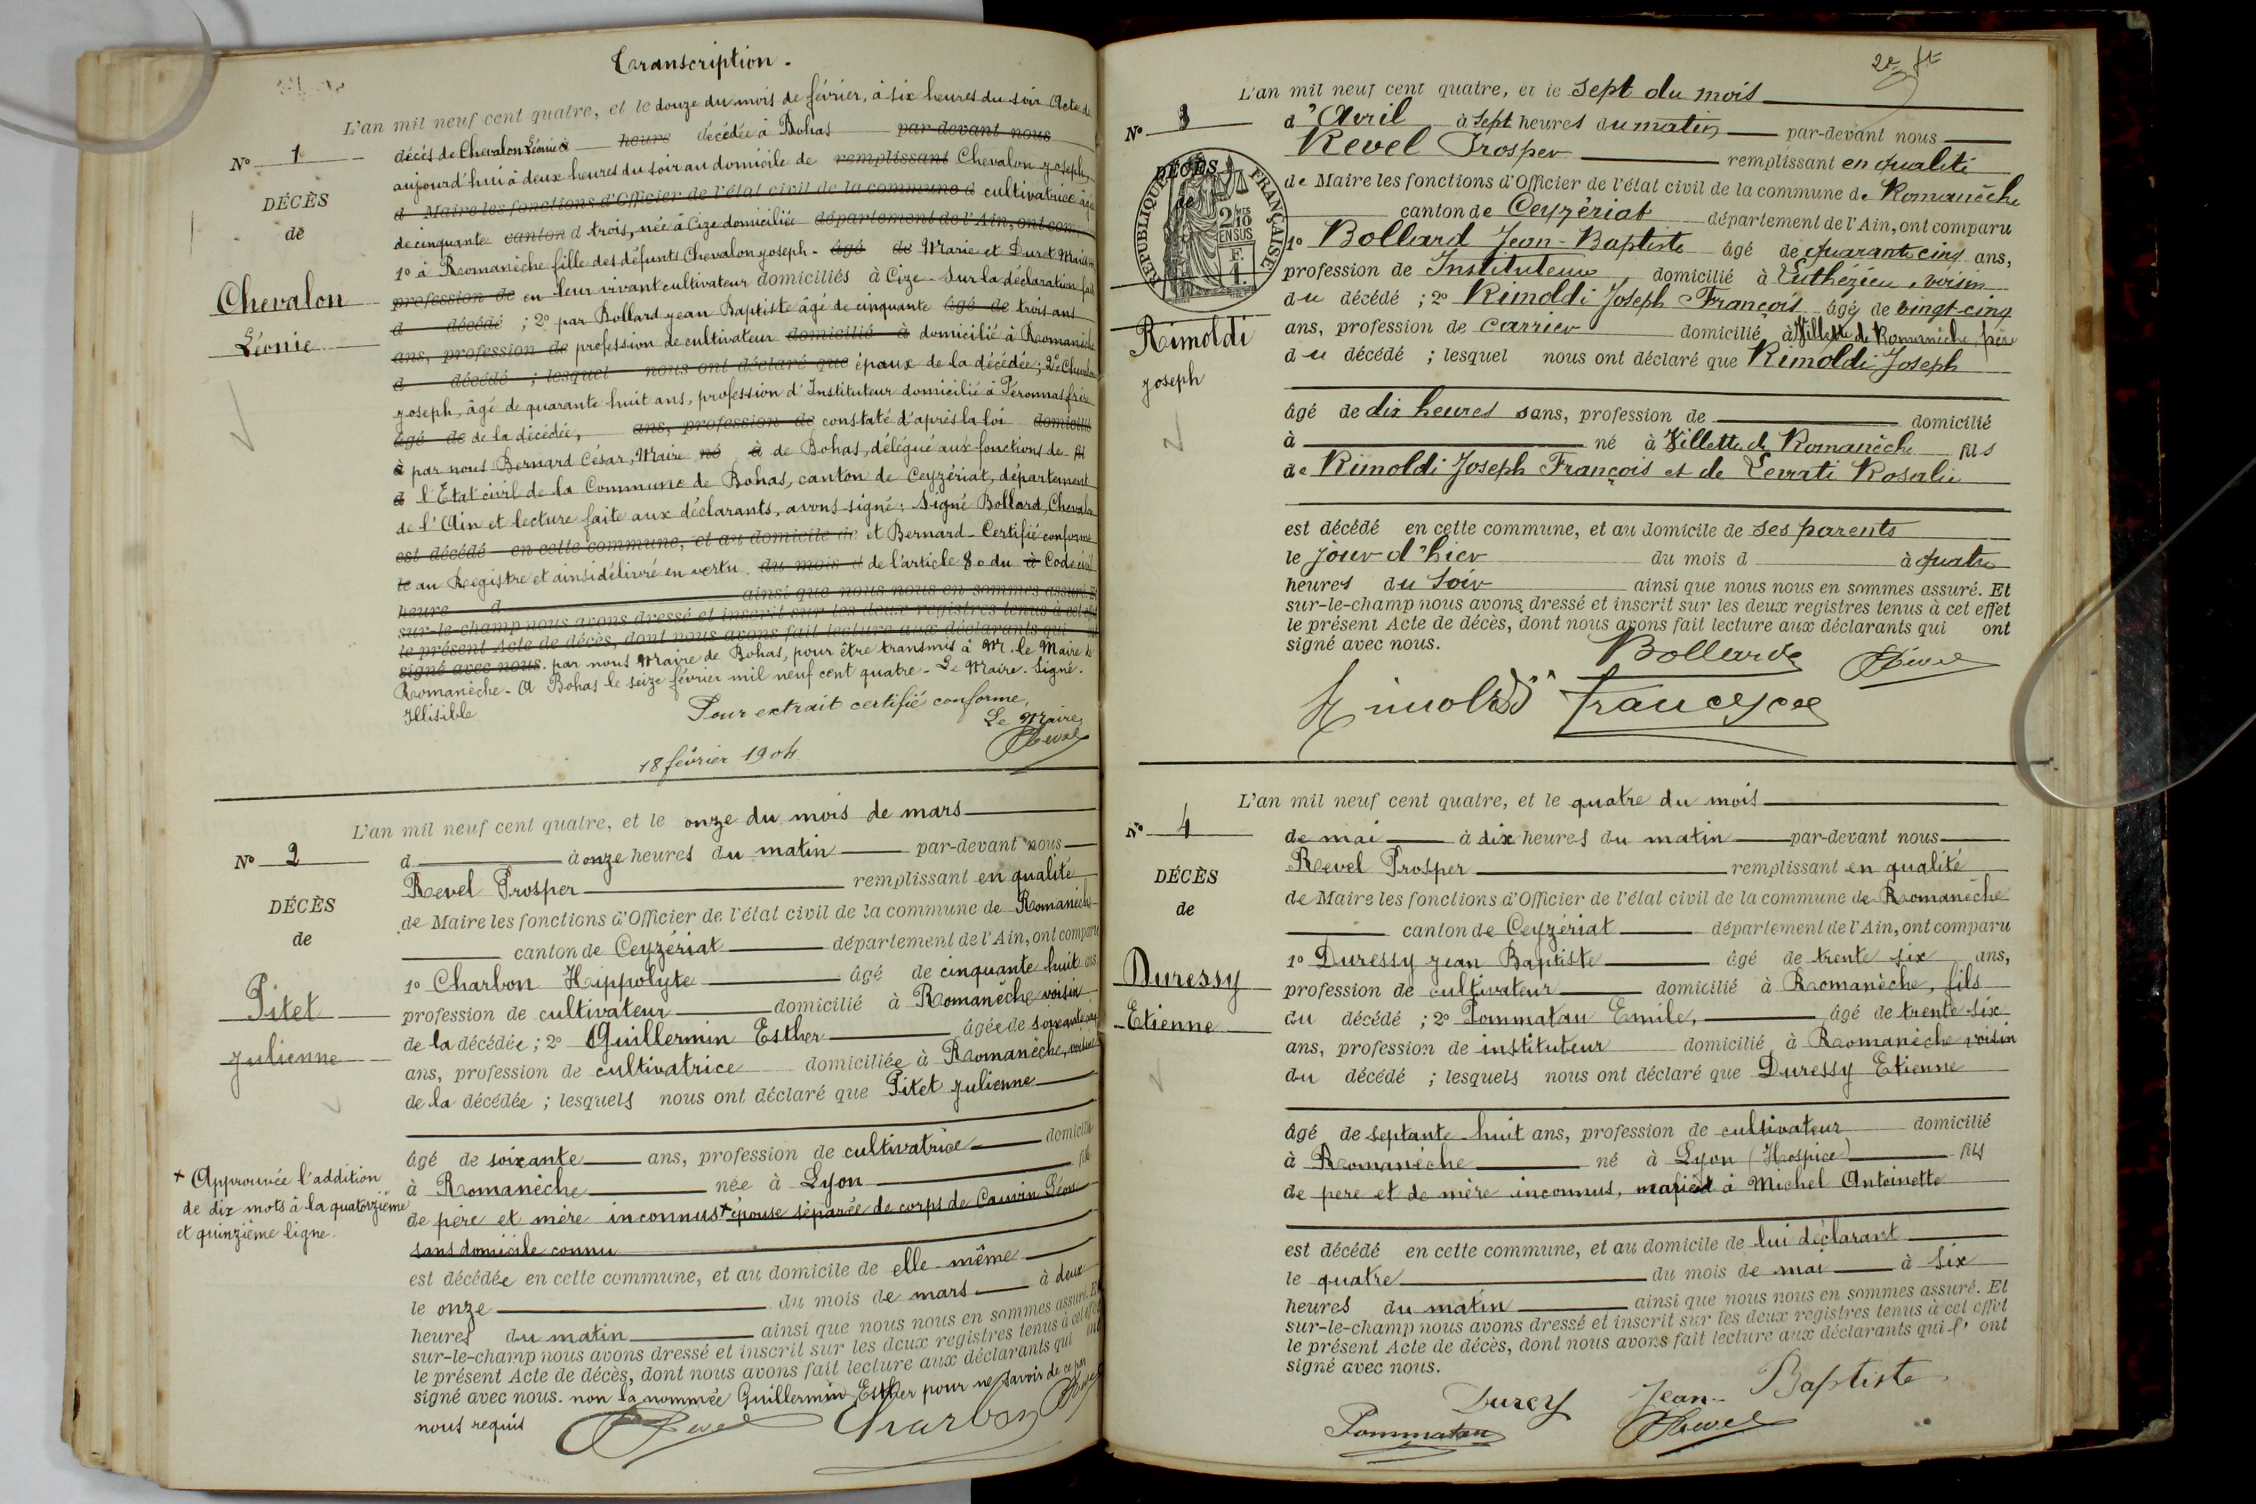 Transcription.
L'an mil neuf cent quatre, et le douze du mois de février, à six heures du soir Acte de
N° 1
DÉCÈS
de
Chevalon
Léonie
décès de Chevalon Léonie à heure décédée à Bohas par-devant nous
aujourd'hui à deux heures du soir au domicile de remplissant Chevalon Joseph,
d Maire les fonctions d'Officier de l'état civil de la commune d cultivatrice âgée
de cinquante canton d trois, née à Cize domiciliée département de l'Ain, ont com
1° à Romanèche fille des défunts Chevalon Joseph - âgé de Marie et Duret
profession de en leur vivant cultivateur domiciliés à Cize - Sur la déclaration fait
d décédé ; 2° par Bollard Jean Baptiste âgé de cinquante âgé de trois ans
ans, profession de profession de cultivateur domicilié à domicilié à Romanèche
d décédé ; lesquel nous ont déclaré que époux de la décédée ; 2° Chevalon
Joseph, âgé de quarante huit ans, profession d'Instituteur domicilié à Péronnas frère
âgé de de la décédée, ans, profession de constaté d'après la loi domicilié
à par nous Bernard César, Maire né à de Bohas, délégué aux fonctions de fil
d l'Etat civil de la Commune de Bohas, canton de Ceyzériat, département
de l'Ain et lecture faite aux déclarants, avons signé : Signé Bollard, Chevalon
est décédé en cette commune, et au domicile de et Bernard - Certifié conforme
le au Registre et ainsi délivré en vertu du mois d de l'article 80 du à Code civil
heure d ainsi que nous nous en sommes assuré. Et
sur-le-champ nous avons dressé et inscrit sur les deux registres tenus à cet effet
le présent Acte de décès, dont nous avons fait lecture aux déclarants qui
signé avec nous. par nous Maire de Bohas, pour être transmis à Mr. le Maire de
Romanèche - A Bohas le seize février mil neuf cent quatre - Le Maire. Signé.
Illisible
Pour extrait certifié conforme,
Le Maire,
Revel
18 février 1904
L'an mil neuf cent quatre, et le onze du mois de mars
N° 2
DÉCÈS
de
Pitet
Julienne
d à onze heures du matin par-devant nous
Revel Prosper remplissant en qualité
de Maire les fonctions d'Officier de l'état civil de la commune de Romanèche
canton de Ceyzériat département de l'Ain, ont comparu
1° Charbon Hippolyte âgé de cinquante huit ans
profession de cultivateur domicilié à Romanèche voisin
de la décédée ; 2° Guillermin Esther âgée de soixante
ans, profession de cultivatrice domiciliée à Romanèche, voisine
de la décédée ; lesquels nous ont déclaré que Pitet Julienne
âgé de soixante ans, profession de cultivatrice domicilié
à Romanèche née à Lyon fille
de père et mère inconnus + épouse séparée de corps de Cauvin Léon
sans domicile connu
+ Approuvée l'addition
de dix mots à la quatorzième
et quinzième ligne.
est décédée en cette commune, et au domicile de elle-même
le onze du mois de mars à deux
heures du matin ainsi que nous nous en sommes assuré. Et
sur-le-champ nous avons dressé et inscrit sur les deux registres tenus à cet effet
le présent Acte de décès, dont nous avons fait lecture aux déclarants qui ont
signé avec nous. non la nommée Guillermin Esther pour ne savoir de ce par
nous requis
Revel Charbon Revel
2e ft
L'an mil neuf cent quatre, et le sept du mois
N° 3
DÉCÈS
de
RÉPUBLIQUE FRANÇAISE
2/10 EN SUS
F.
1.
Rimoldi
Joseph
d'Avril à sept heures du matin par-devant nous
Revel Prosper remplissant en qualité
de Maire les fonctions d'Officier de l'état civil de la commune de Romanèche
canton de Ceyzériat département de l'Ain, ont comparu
1° Bollard Jean-Baptiste âgé de quarante cinq ans,
profession de Instituteur domicilié à voisin
du décédé ; 2° Rimoldi Joseph François âgé de vingt-cinq
ans, profession de carrier domicilié à Villette de Romanèche, père
du décédé ; lesquel nous ont déclaré que Rimoldi Joseph
âgé de dix heures sans, profession de domicilié
à né à Villette de Romanèche fils
de Rimoldi Joseph François et de Rosalie
est décédé en cette commune, et au domicile de ses parents
le jour d'hier du mois d à quatre
heures du soir ainsi que nous nous en sommes assuré. Et
sur-le-champ nous avons dressé et inscrit sur les deux registres tenus à cet effet
le présent Acte de décès, dont nous avons fait lecture aux déclarants qui ont
signé avec nous.
Bollard Revel
Rimoldi Francesco
L'an mil neuf cent quatre, et le quatre du mois
N° 4
DÉCÈS
de
Duressy
Etienne
de mai à dix heures du matin par-devant nous
Revel Prosper remplissant en qualité
de Maire les fonctions d'Officier de l'état civil de la commune de Romanèche
canton de Ceyzériat département de l'Ain, ont comparu
1° Duressy Jean Baptiste âgé de trente six ans,
profession de cultivateur domicilié à Romanèche, fils
du décédé ; 2° Pommatau Emile, âgé de trente-six
ans, profession de instituteur domicilié à Romanèche voisin
du décédé ; lesquels nous ont déclaré que Duressy Etienne
âgé de septante-huit ans, profession de cultivateur domicilié
à Romanèche né à Lyon (Hospice) fils
de père et de mère inconnus, marié à Michel Antoinette
est décédé en cette commune, et au domicile de lui déclarant
le quatre du mois de mai à six
heures du matin ainsi que nous nous en sommes assuré. Et
sur-le-champ nous avons dressé et inscrit sur les deux registres tenus à cet effet
le présent Acte de décès, dont nous avons fait lecture aux déclarants qui l' ont
signé avec nous.
Durecy Jean-Baptiste
Pommatau Revel